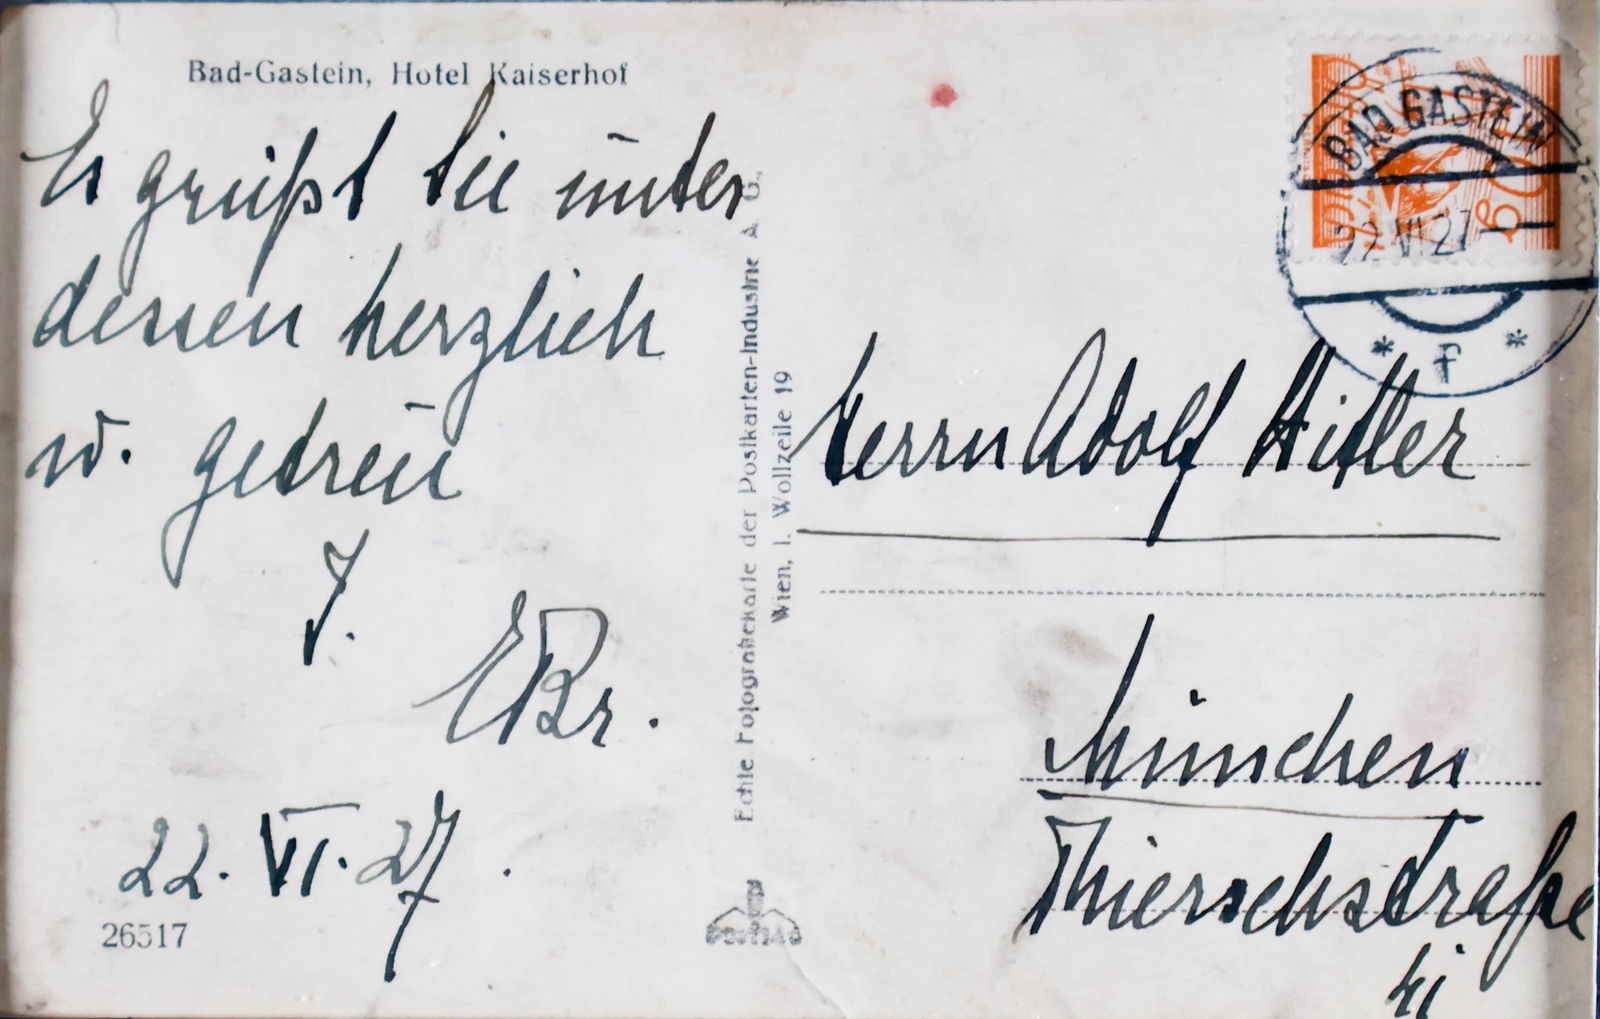 Bad-Gastein, Hotel Kaiserhof
Es grüßt Sie unter
dessen herzlich
u. getreu
I.
EBr.
22. VI. 27.
26517
Echte Fotografiekarte der Postkarten-Industrie A. G.,
Wien, I. Wollzeile 19
POSTIAG
BAD GASTEIN
22 VI 27
* b *
Herrn Adolf Hitler
München
Thierschstraße
41